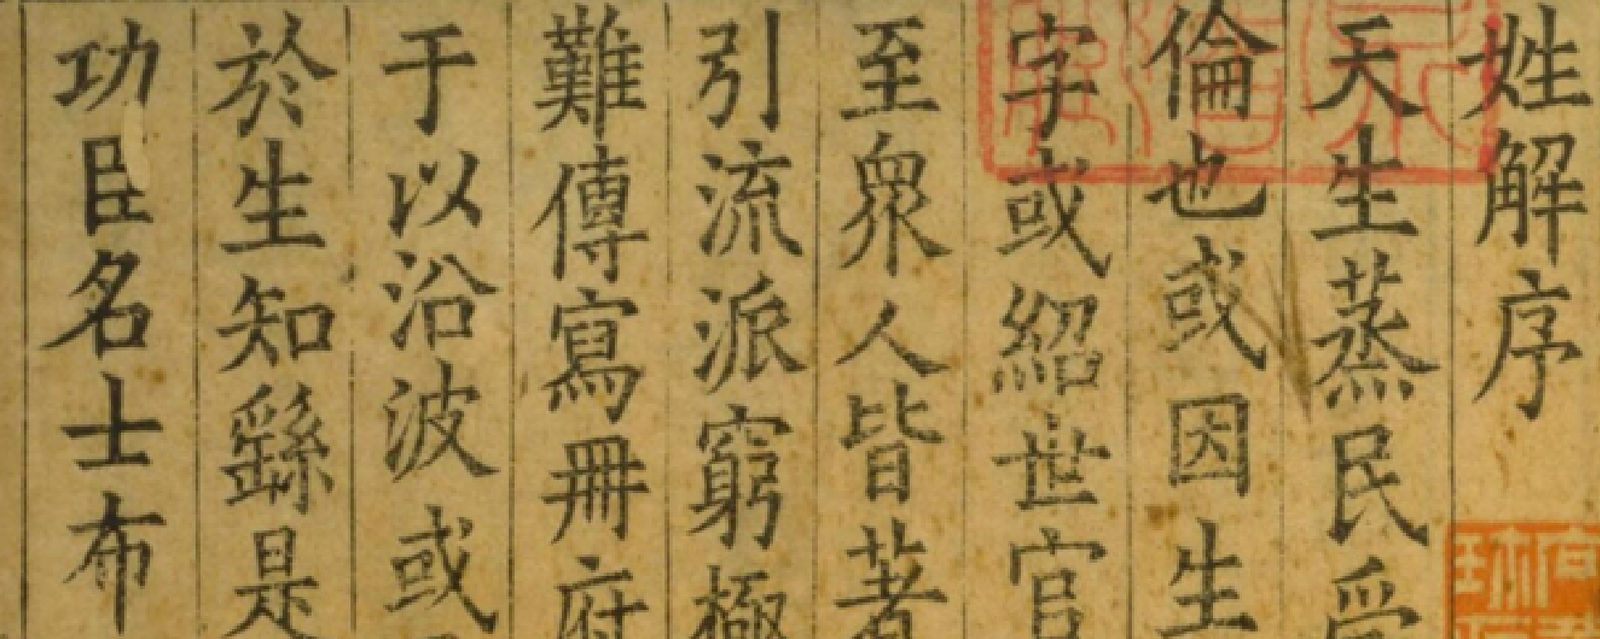 姓解序
天生蒸民受
倫也或因生
字或紹世官
至衆人皆著
引流派窮極
難傳寫冊府
于以沿波或
於生知繇是
功臣名士布